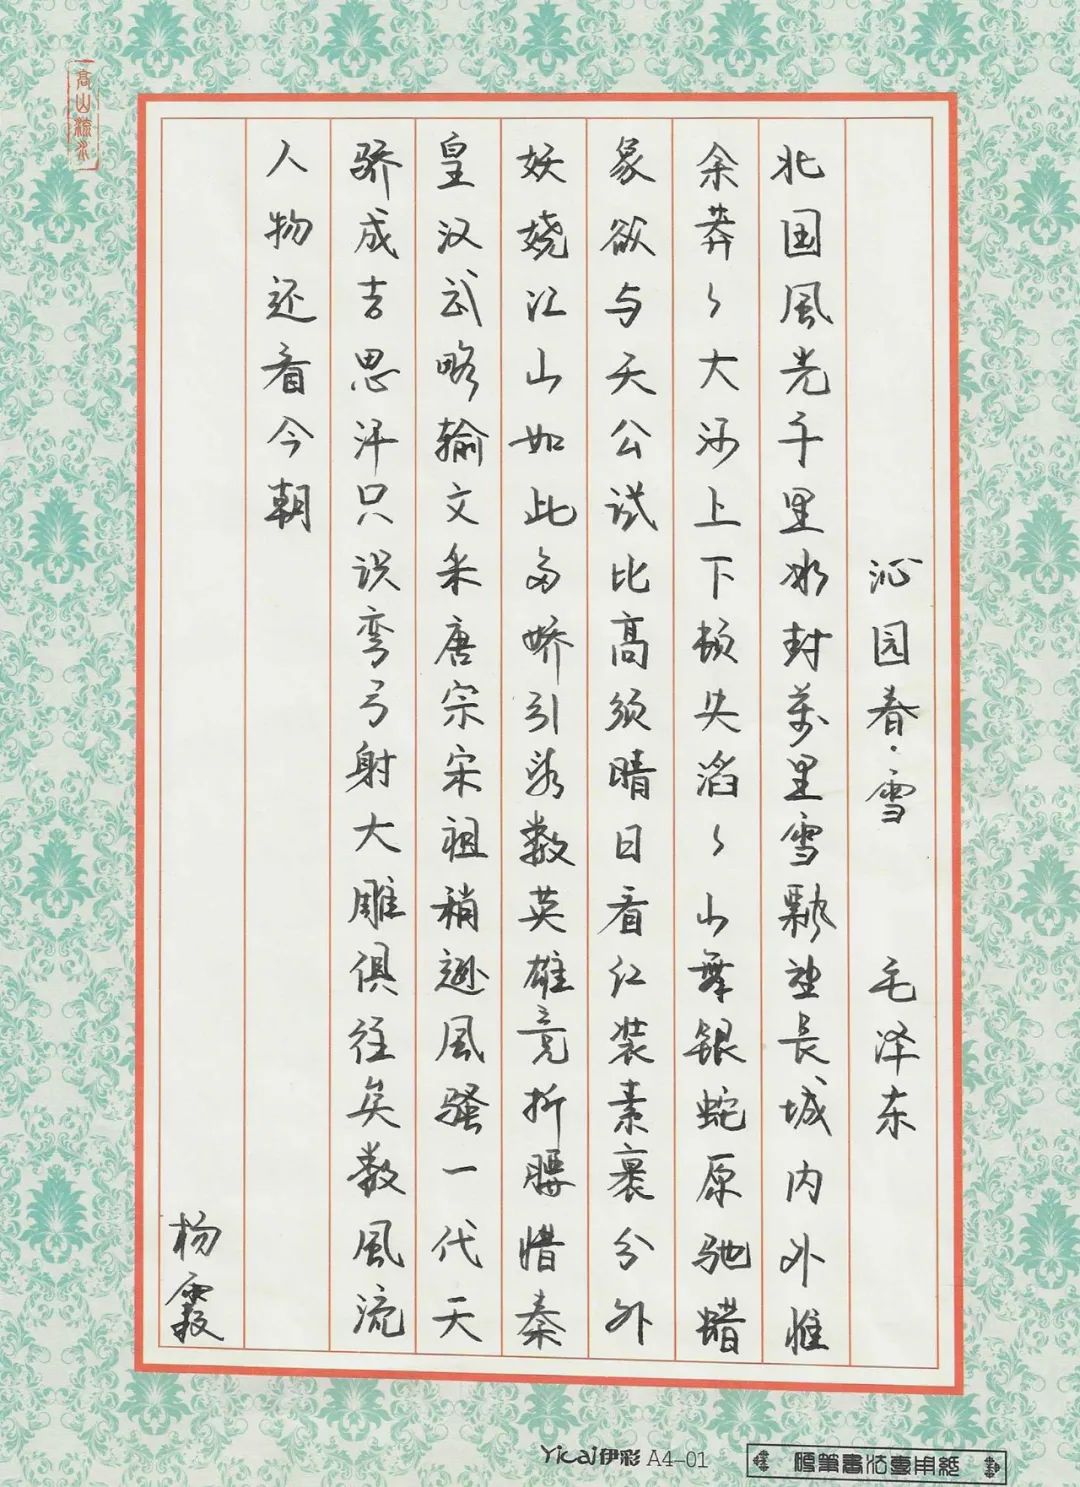 高山流水
沁园春·雪 毛泽东
北国風光千里冰封萬里雪飘望長城内外惟
余莽々大河上下顿失滔々山舞银蛇原驰蜡
象欲与天公试比高须晴日看红装素裹分外
妖娆江山如此多娇引無数英雄竞折腰惜秦
皇汉武略输文采唐宗宋祖稍逊風骚一代天
骄成吉思汗只识弯弓射大雕俱往矣数風流
人物还看今朝
杨霞
Yicai伊彩 A4-01
硬筆書法專用紙